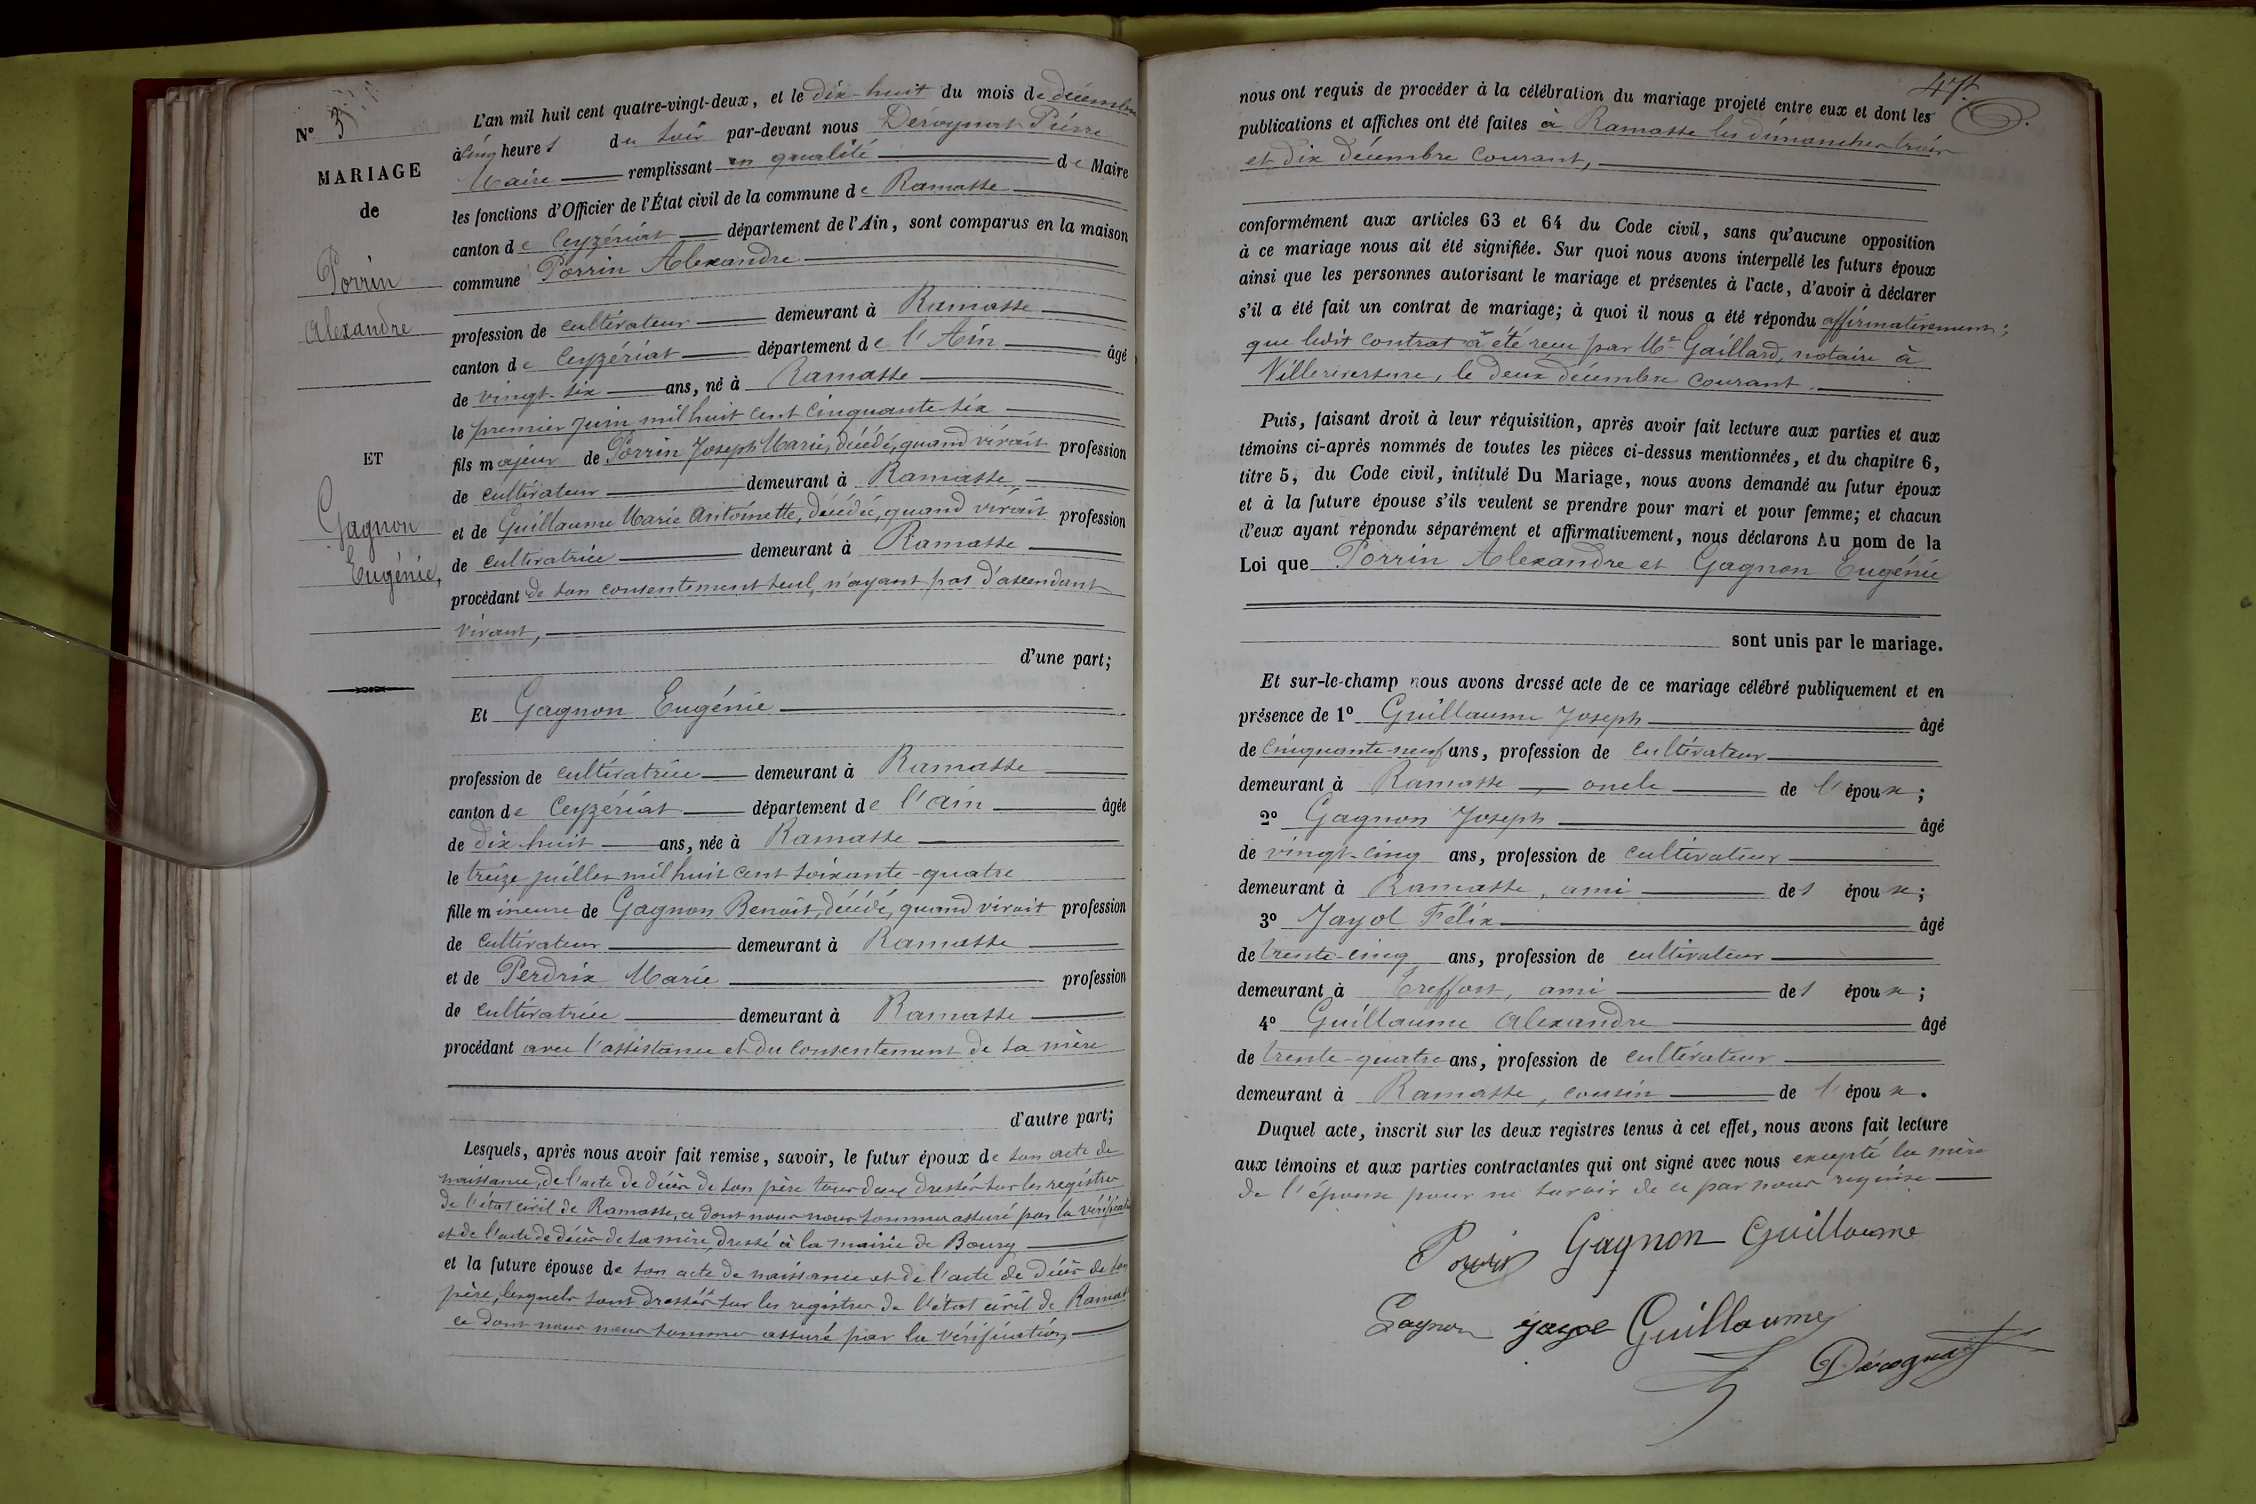 N° 3
MARIAGE
de
Porrin
Alexandre
ET
Gagnon
Eugénie,
L'an mil huit cent quatre-vingt-deux, et le dix-huit du mois de décembre
à cinq heures du soir par-devant nous Dérognat Pierre
Maire remplissant en qualité de Maire
les fonctions d'Officier de l'État civil de la commune de Ramasse
canton de Ceyzériat département de l'Ain, sont comparus en la maison
commune Porrin Alexandre
profession de cultivateur demeurant à Ramasse
canton de Ceyzériat département de l'Ain âgé
de vingt-six ans, né à Ramasse
le premier juin mil huit cent cinquante-six
fils majeur de Porrin Joseph Marie, décédé, quand vivait profession
de cultivateur demeurant à Ramasse
et de Guillaume Marie Antoinette, décédée, quand vivait profession
de cultivatrice demeurant à Ramasse
procédant de son consentement seul, n'ayant pas d'ascendant
vivant,
d'une part;
Et Gagnon Eugénie
profession de cultivatrice demeurant à Ramasse
canton de Ceyzériat département de l'Ain âgée
de dix-huit ans, née à Ramasse
le treize juillet mil huit cent soixante-quatre
fille mineure de Gagnon Benoit, décédé, quand vivait profession
de cultivateur demeurant à Ramasse
et de Perdrix Marie profession
de cultivatrice demeurant à Ramasse
procédant avec l'assistance et du consentement de sa mère
d'autre part;
Lesquels, après nous avoir fait remise, savoir, le futur époux de son acte de
naissance, de l'acte de décès de son père tous deux dressés sur les registres
de l'état civil de Ramasse, ce dont nous nous sommes assuré par la vérification
et de l'acte de décès de sa mère, dressé à la mairie de Bourg
et la future épouse de son acte de naissance et de l'acte de décès de son
père, lesquels sont dressés sur les registres de l'état civil de Ramasse
ce dont nous nous sommes assuré par la vérification,
47
nous ont requis de procéder à la célébration du mariage projeté entre eux et dont les
publications et affiches ont été faites à Ramasse les dimanches trois
et dix décembre courant,
conformément aux articles 63 et 64 du Code civil, sans qu'aucune opposition
à ce mariage nous ait été signifiée. Sur quoi nous avons interpellé les futurs époux
ainsi que les personnes autorisant le mariage et présentes à l'acte, d'avoir à déclarer
s'il a été fait un contrat de mariage; à quoi il nous a été répondu affirmativement;
que ledit contrat a été reçu par Me Gaillard, notaire à
Villereversure, le deux décembre courant.
Puis, faisant droit à leur réquisition, après avoir fait lecture aux parties et aux
témoins ci-après nommés de toutes les pièces ci-dessus mentionnées, et du chapitre 6,
titre 5, du Code civil, intitulé Du Mariage, nous avons demandé au futur époux
et à la future épouse s'ils veulent se prendre pour mari et pour femme; et chacun
d'eux ayant répondu séparément et affirmativement, nous déclarons Au nom de la
Loi que Porrin Alexandre et Gagnon Eugénie
sont unis par le mariage.
Et sur-le-champ nous avons dressé acte de ce mariage célébré publiquement et en
présence de 1° Guillaume Joseph âgé
de cinquante-neuf ans, profession de cultivateur
demeurant à Ramasse, oncle de l'époux;
2° Gagnon Joseph âgé
de vingt-cinq ans, profession de cultivateur
demeurant à Ramasse, ami des époux;
3° Jayol Félix âgé
de trente-cinq ans, profession de cultivateur
demeurant à Treffort, ami des époux;
4° Guillaume Alexandre âgé
de trente-quatre ans, profession de cultivateur
demeurant à Ramasse, cousin de l'époux.
Duquel acte, inscrit sur les deux registres tenus à cet effet, nous avons fait lecture
aux témoins et aux parties contractantes qui ont signé avec nous excepté la mère
de l'épouse pour ne savoir de ce par nous requise
Porrin Gagnon Guillaume
Gagnon jayol Guillaume
Dérognat